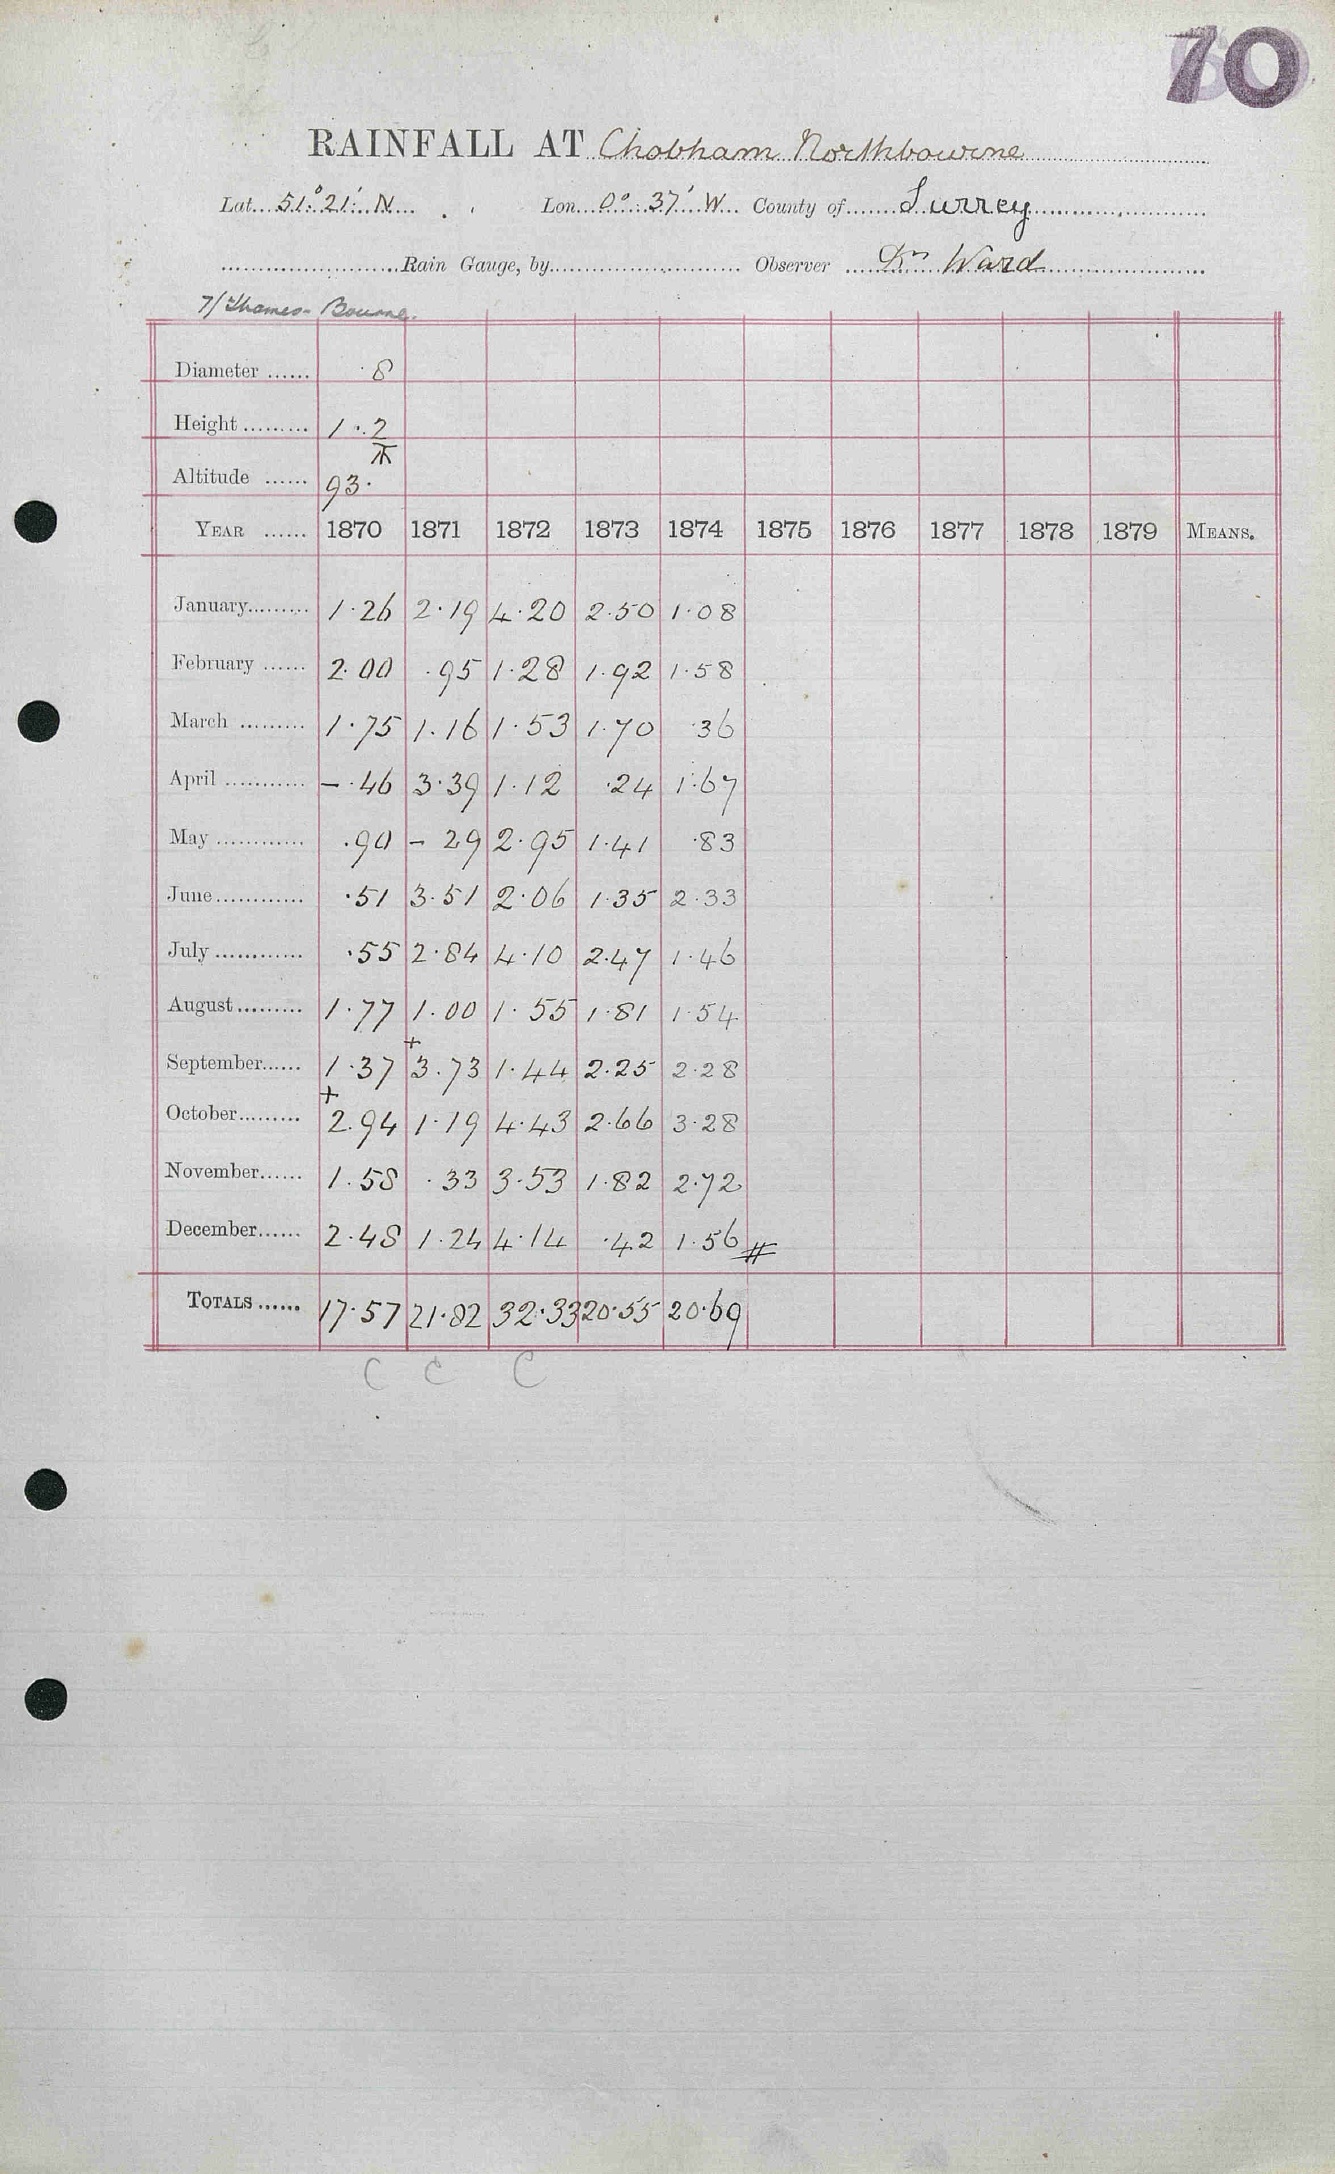 70
RAINFALL AT Chobham Northbourne
Lat. 51° 21' N Lon. 0° 37' W County of Surrey
Rain Gauge, by Observer Dr Ward
7/ Thames - Bourne.
Diameter ...... 8
Height ......... 1 . 2
Altitude ...... 93.
YEAR ...... 1870 1871 1872 1873 1874 1875 1876 1877 1878 1879 MEANS.
January......... 1.26 2.19 4.20 2.50 1.08
February ...... 2.00 .95 1.28 1.92 1.58
March ......... 1.75 1.16 1.53 1.70 .36
April ............ - .46 3.39 1.12 .24 1.67
May ............ .90 - 29 2.95 1.41 .83
June............ .51 3.51 2.06 1.35 2.33
July ............ .55 2.84 4.10 2.47 1.46
August ......... 1.77 1.00 1.55 1.81 1.54
September...... 1.37 + 3.73 1.44 2.25 2.28
October......... + 2.94 1.19 4.43 2.66 3.28
November...... 1.58 .33 3.53 1.82 2.72
December...... 2.48 1.24 4.14 .42 1.56 #
TOTALS ...... 17.57 21.82 32.33 20.55 20.69
C C C